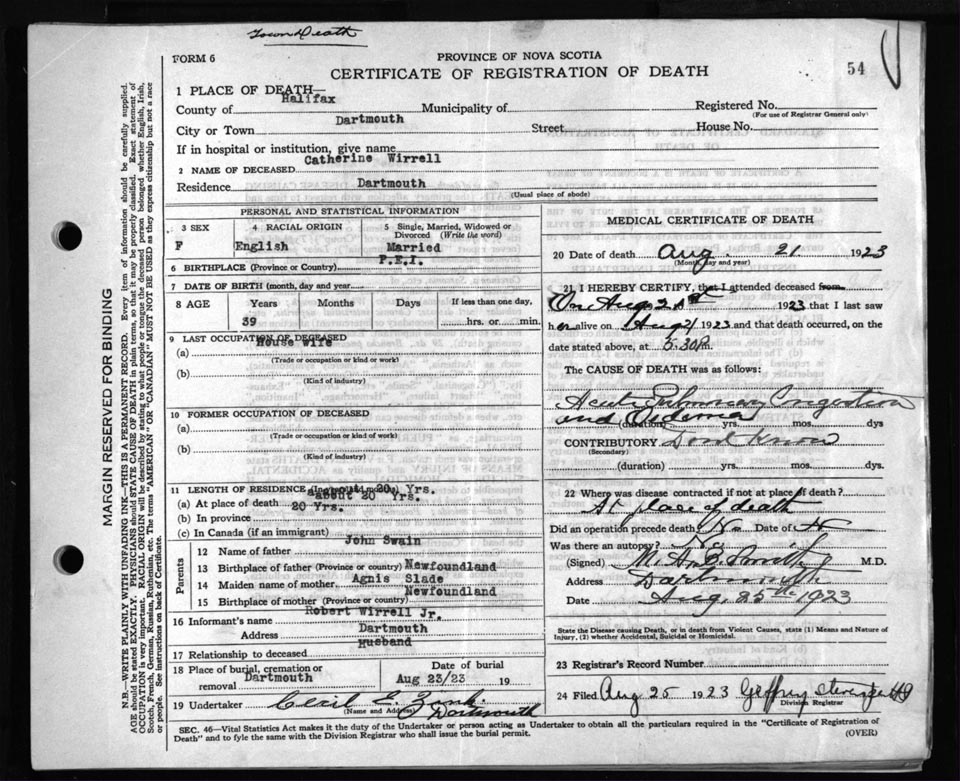 Town Death
FORM 6
PROVINCE OF NOVA SCOTIA
CERTIFICATE OF REGISTRATION OF DEATH
54
1 PLACE OF DEATH—
County of Halifax Municipality of Registered No.
(For use of Registrar General only)
City or Town Dartmouth Street House No.
If in hospital or institution, give name
2 NAME OF DECEASED Catherine Wirrell
Residence Dartmouth
(Usual place of abode)
PERSONAL AND STATISTICAL INFORMATION
3 SEX
F
4 RACIAL ORIGIN
English
5 Single, Married, Widowed or Divorced (Write the word)
Married
6 BIRTHPLACE (Province or Country) P.E.I.
7 DATE OF BIRTH (month, day and year)
8 AGE Years Months Days If less than one day,
39 hrs. or min.
9 LAST OCCUPATION OF DECEASED
(a) House wife
(Trade or occupation or kind or work)
(b)
(Kind of industry)
10 FORMER OCCUPATION OF DECEASED
(a)
(Trade or occupation or kind of work)
(b)
(Kind of industry)
11 LENGTH OF RESIDENCE 20 Yrs.
(a) At place of death about 20 Yrs.
(b) In province 20 Yrs.
(c) In Canada (if an immigrant)
Parents
12 Name of father John Swain
13 Birthplace of father (Province or country) Newfoundland
14 Maiden name of mother Agnis Slade
15 Birthplace of mother (Province or country) Newfoundland
16 Informant's name Robert Wirrell Jr.
Address Dartmouth
17 Relationship to deceased Husband
18 Place of burial, cremation or removal Dartmouth
Date of burial
Aug 23/23 19
19 Undertaker Cecil E. Zink
(Name and Address) Dartmouth
MEDICAL CERTIFICATE OF DEATH
20 Date of death Aug. 21 1923
(Month, day and year)
21 I HEREBY CERTIFY, that I attended deceased from
On Aug 21st 1923 that I last saw
her alive on Aug 21 1923 and that death occurred, on the
date stated above, at 5.30 Pm.
The CAUSE OF DEATH was as follows:
Acute Pulmonary Congestion
and Oedema
(duration) yrs. mos. dys
CONTRIBUTORY Dont Know
(Secondary)
(duration) yrs. mos. dys.
22 Where was disease contracted if not at place of death?
At place of death
Did an operation precede death? No Date of
Was there an autopsy? No
(Signed) Smith M.D.
Address Dartmouth
Date Aug. 25th 1923
State the Disease causing Death, or in death from Violent Causes, state (1) Means and Nature of
Injury, (2) whether Accidental, Suicidal or Homicidal.
23 Registrar's Record Number
24 Filed Aug 25 1923
Division Registrar
SEC. 46—Vital Statistics Act makes it the duty of the Undertaker or person acting as Undertaker to obtain all the particulars required in the "Certificate of Registration of
Death" and to fyle the same with the Division Registrar who shall issue the burial permit.
(OVER)
MARGIN RESERVED FOR BINDING
N.B.—WRITE PLAINLY WITH UNFADING INK—THIS IS A PERMANENT RECORD. Every item of information should be carefully supplied.
AGE should be stated EXACTLY. PHYSICIANS should STATE CAUSE OF DEATH in plain terms, so that it may be properly classified. Exact statement of
OCCUPATION is very important. RACIAL ORIGIN will be described by stating to what people or tongue the deceased person belonged whether English, Irish,
Scotch, French, German, Russian, Ruthenian, etc. The terms "AMERICAN" OR "CANADIAN" MUST NOT BE USED as they express citizenship but not a race
or people. See instructions on back of Certificate.